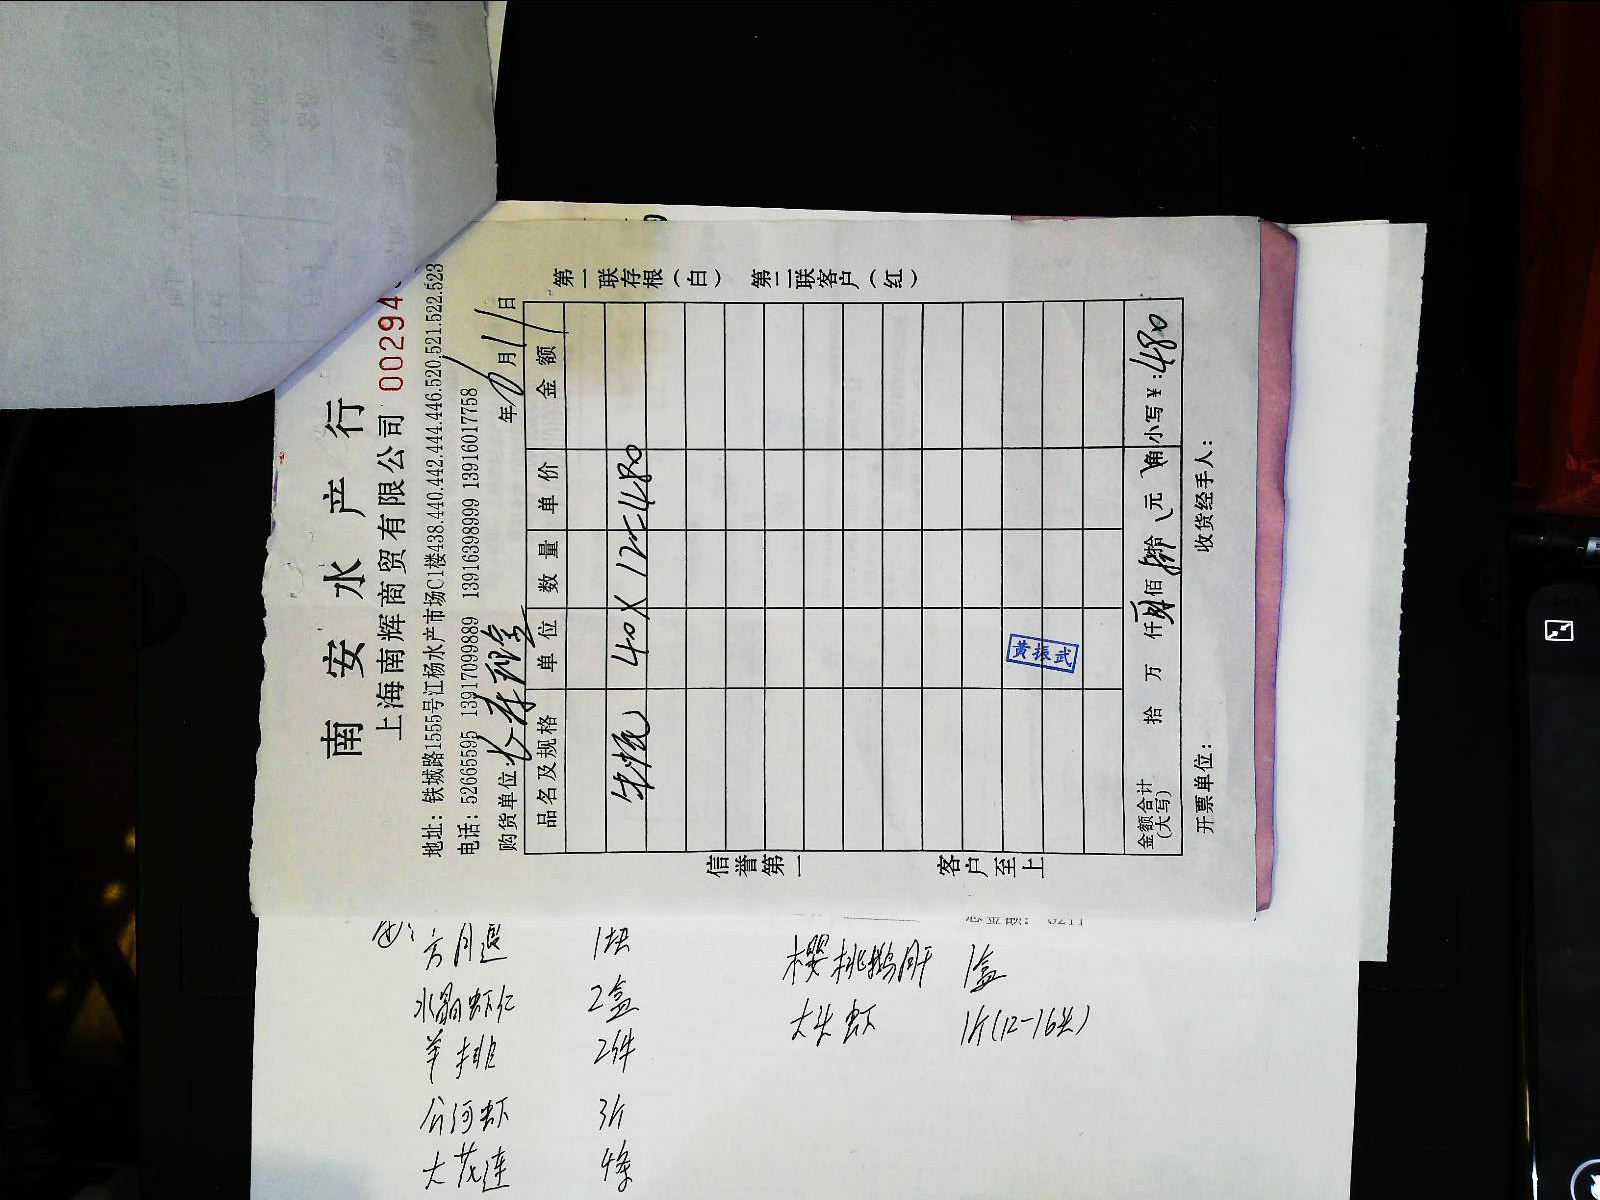 南安水产行
上海南辉商贸有限公司 00294
地址：铁城路1555号江杨水产市场C1楼438.440.442.444.446.520.521.522.523
电话：52665595 13917099889 13916398999 13916017758
购货单位： 年6月11日
品名及规格 单位 数量 单价 金额
40X12=480
黄振武
金额合计(大写) 拾 万 仟 肆佰 捌拾 元 角 小写￥:480
开票单位： 收货经手人：
第一联存根（白） 第二联客户（红）
信誉第一 客户至上
六月 1块
水晶虾仁 2盒
羊排 2件
河虾 3斤
大 4条
樱桃鹅肝 1盒
大头虾 1斤(12-16头)